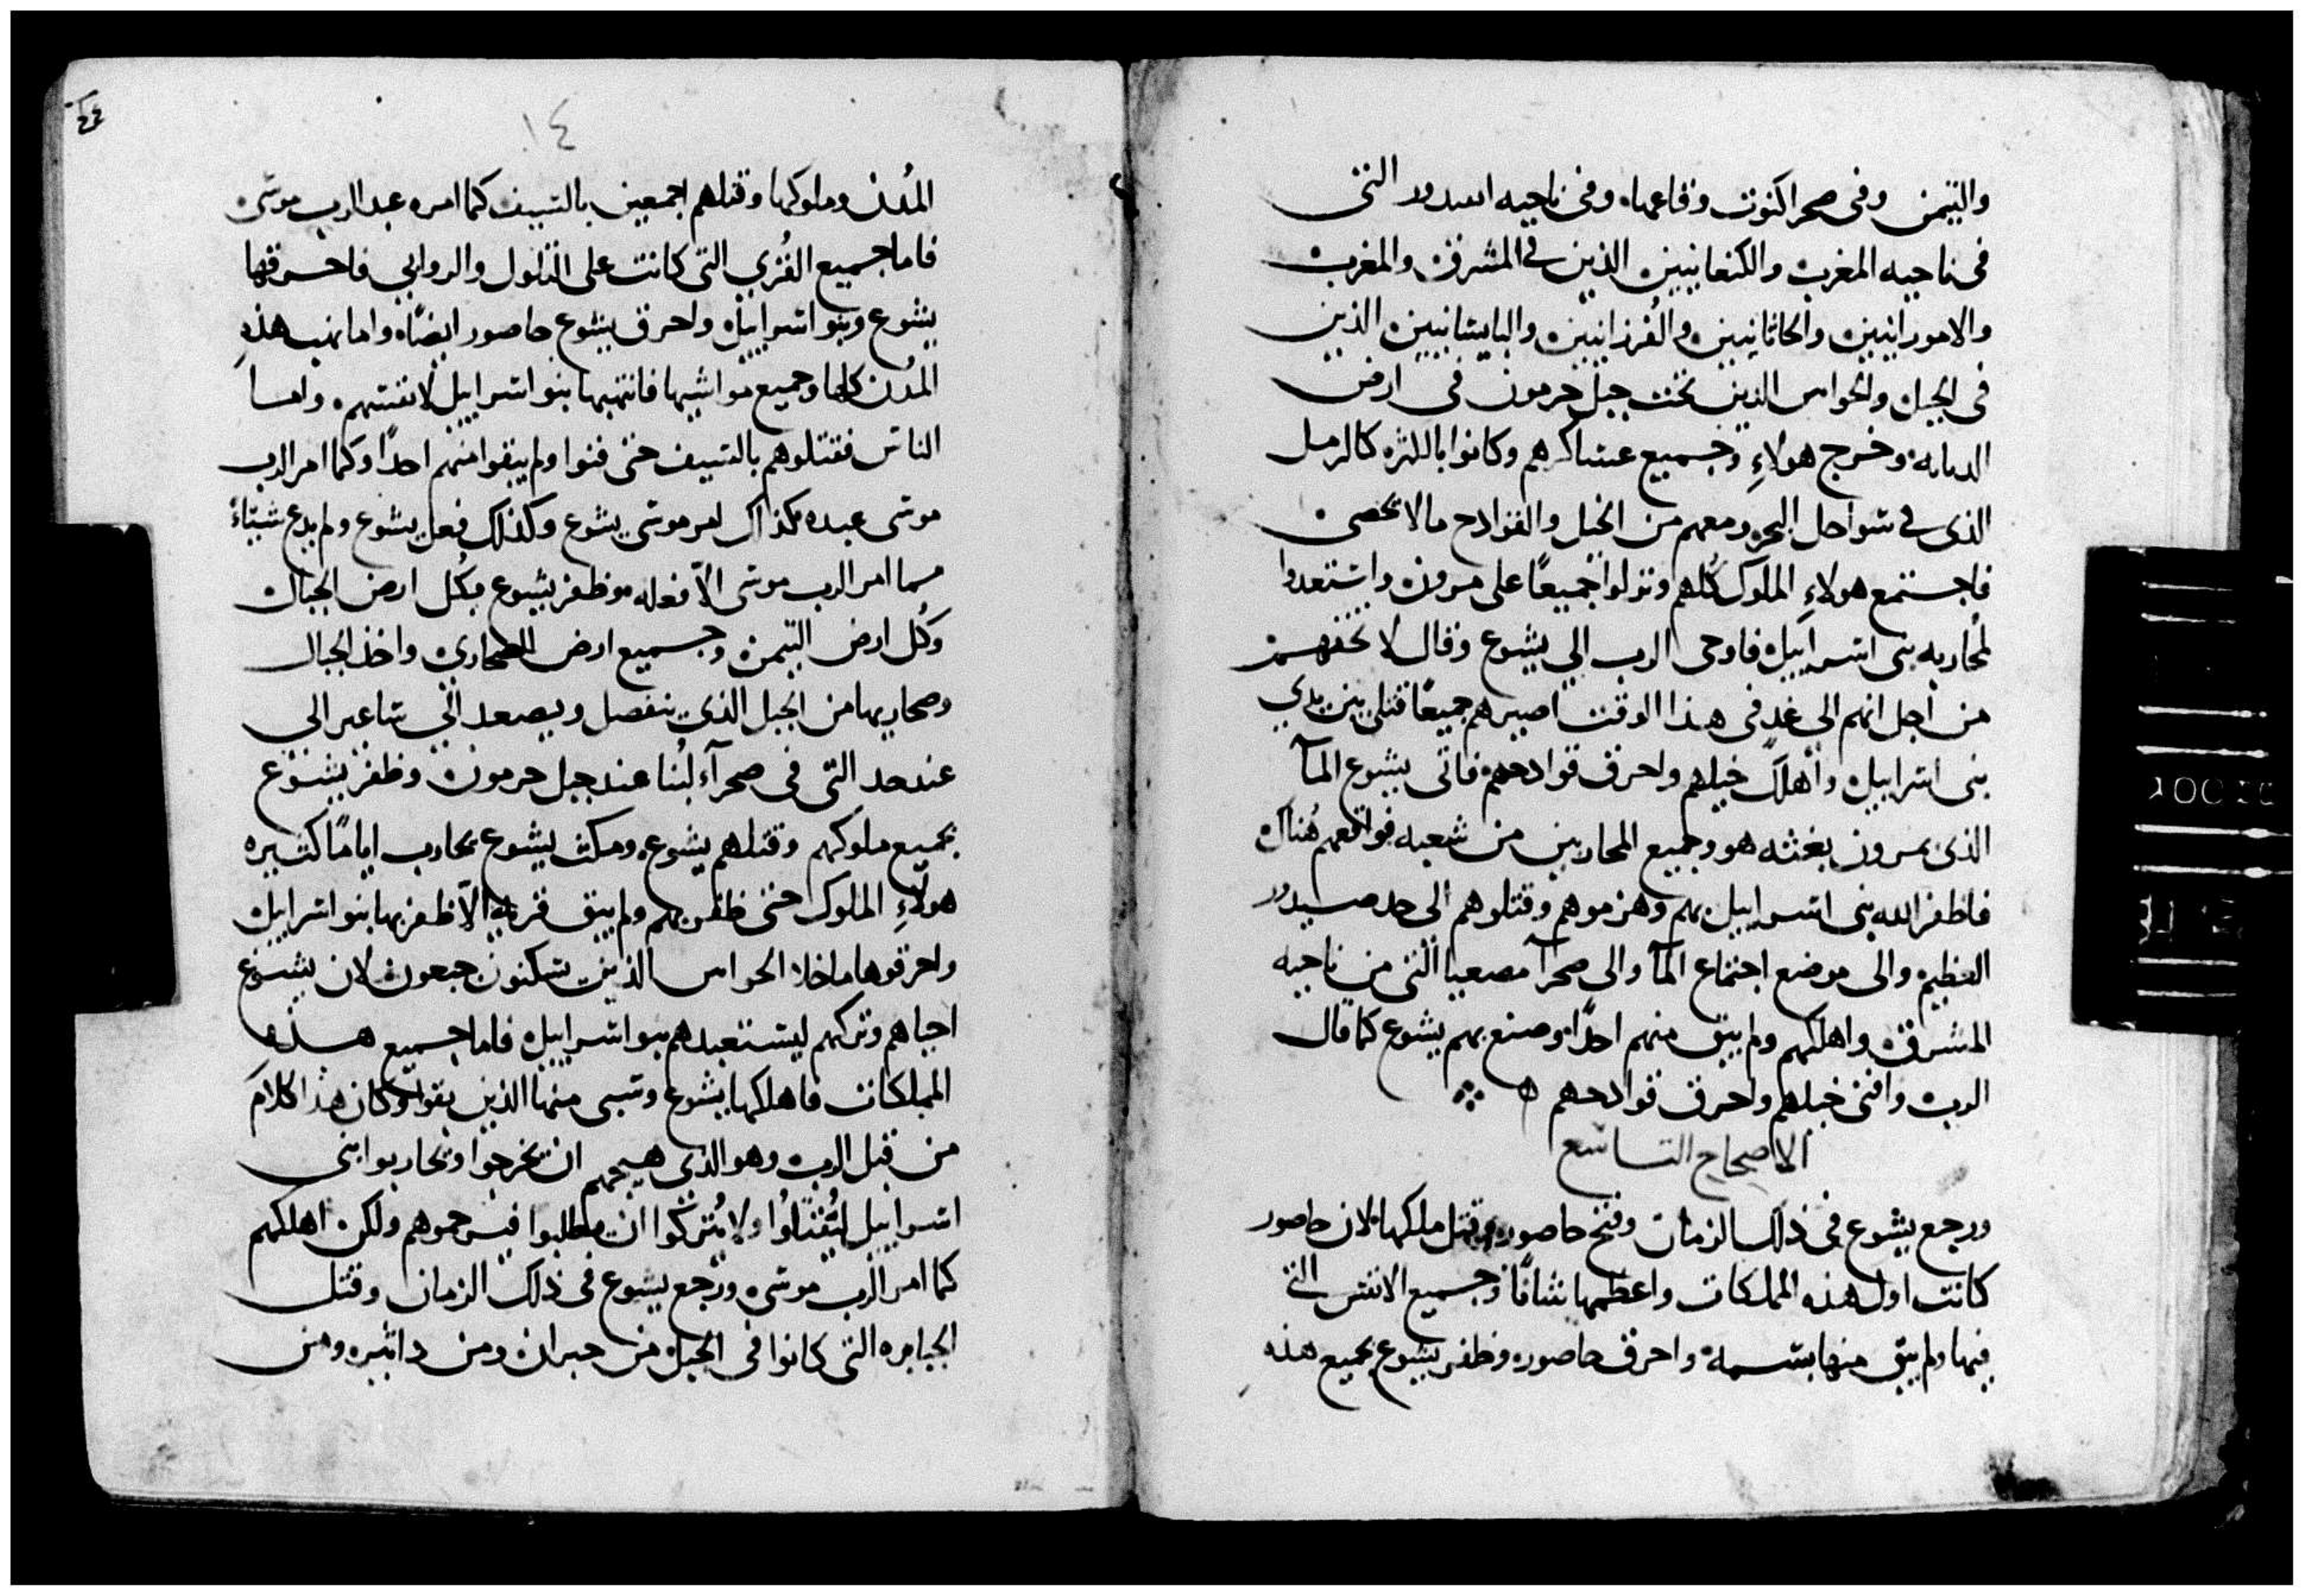 والتيمن وفى صحرا كنوت وقاعها وفى ناحيه اسدود التى
فى ناحيه المغرب والكنعانيين الذين فى المشرق والمغرب
والامورانيين والحاثانيين والفرزانيين والبابسانيين الذين
فى الجبل والحواس الذين تحت جبل حرمون فى ارض
وخرج هولاءِ وجميع عساكرهم وكانوا بالكثره كالرمل
الذى فى سواحل البحر ومعهم من الخيل والقوادح مالا يحصى
فاجتمع هولاءِ الملوك كُلهم ونزلوا جميعًا على مرون واستعدوا
لمُحاربه بنى اسراييل فاوحى الرب الي يشوع وقال لا تخفهم
من اجل انهم الى غد فى هذا الوقت اصيرهم جميعًا قتلى بين يدي
بنى اسراييل وأهلك خيلهم واحرق قوادحهم فاتى يشوع المآ
الذى بمرون بغتثه هو وجميع المحاربين من شعبه فواقعهم هُناك
فاظفر الله بنى اسراييل بهم وهزموهم وقتلوهم الى حد صيدور
العظيم والى موضع اجتماع المآ والى صحرآ مصعيا التى من ناحيه
المشرق واهلكهم ولم يبق منهم احدًا وصنع بهم يشوع كما قال
الرب وافنى خيلهم واحرق قوادحهم
الاصحاح التاسع
ورجع يشوع فى ذلك الزمان وفتح حاصور وقتل ملكها لان حاصور
كانت اول هذه المملكات واعظمها شاقًا وجميع الانفس التى
فيها ولم يبق منها نسمة واحرق حاصور وظفر يشوع بجميع هذه
١٤
المُدن وملوكها وقتلهم اجمعين بالسيف كما امره عبد الرب موسى
فاما جميع القُري التى كانت على التلول والروابي فاحرقها
يشوع وبنو اسراييل واحرق يشوع حاصور ايضًا واما نهب هذهِ
المدُن كلها وجميع مواشيها فانتهبها بنو اسراييل لانفسهم واما
الناس فقتلوهم بالسيف حتى فنوا ولم يبقوا منهم احدًا وكما امر الرب
موسى عبده كذاك امر موسى يشوع وكذلك فعل يشوع ولم يدع شيئاً
مما امر الرب موسى الاّ فعله وظفر يشوع بكُل ارض الجبال
وكُل ارض التيمن وجميع ارض الصحاري واخذ الجبال
وصحاريها من الجبل الذي ينفصل ويصعد الي ساعير الى
عند حد التى فى صحرآءِ لُبنا عند جبل حرمون وظفر يشوع
بجميع ملوكهم وقتلهم يشوع ومكث يشوع يحارب ايامًا كثيره
هولآءِ الملوك حتى ظفر بهم ولم يبق قريه الاّ ظفر بها بنو اسراييل
واحرقوها ما خلا الحواس الذين يسكنون جبعون لان يشوع
احياهم وتركهم ليستعبدهم بنو اسراييل فاما جميع هذه
المملكات فاهلكها يشوع وسبى منها الذين بقوا وكان هذا كلامَ
من قبل الرب وهو الذى هيجهم ان يخرجوا ويحاربوا بنى
اسراييل ليُقتلوُا ولا يُتركوا ان يطلبوا فيرحموهم ولكن اهلكهم
كما امر الرب موسى ورجع يشوع فى ذلك الزمان وقتل
الجبابره التى كانوا فى الجبل من حبران ومن دابير ومن